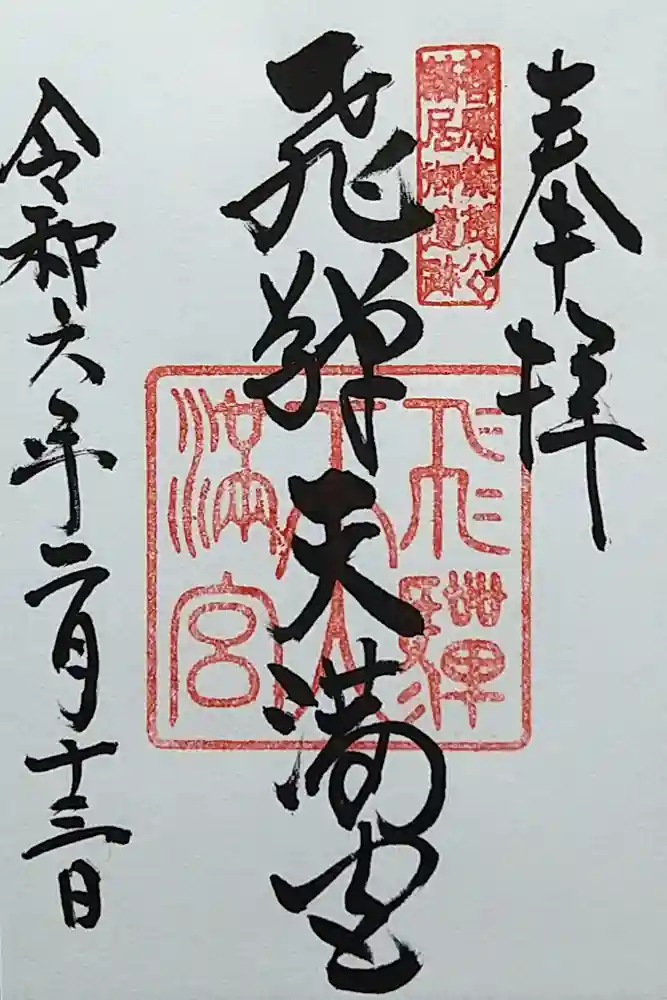 奉拝
菅原兼茂公
謫居御遺跡
飛騨天満宮
飛騨
天
満宮
令和六年二月十三日